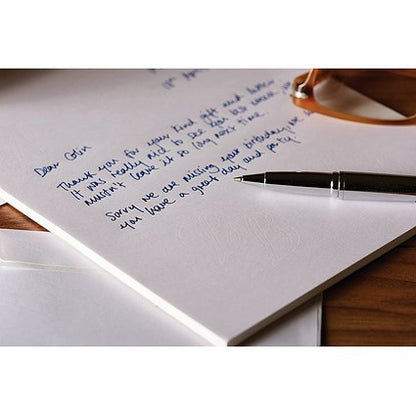 18th April
Dear Colin
Thank you for your kind gift and letter
It was really nice to see you last week,
mustn't leave it so long next time
Sorry we are missing your birthday, we
you have a great day and party